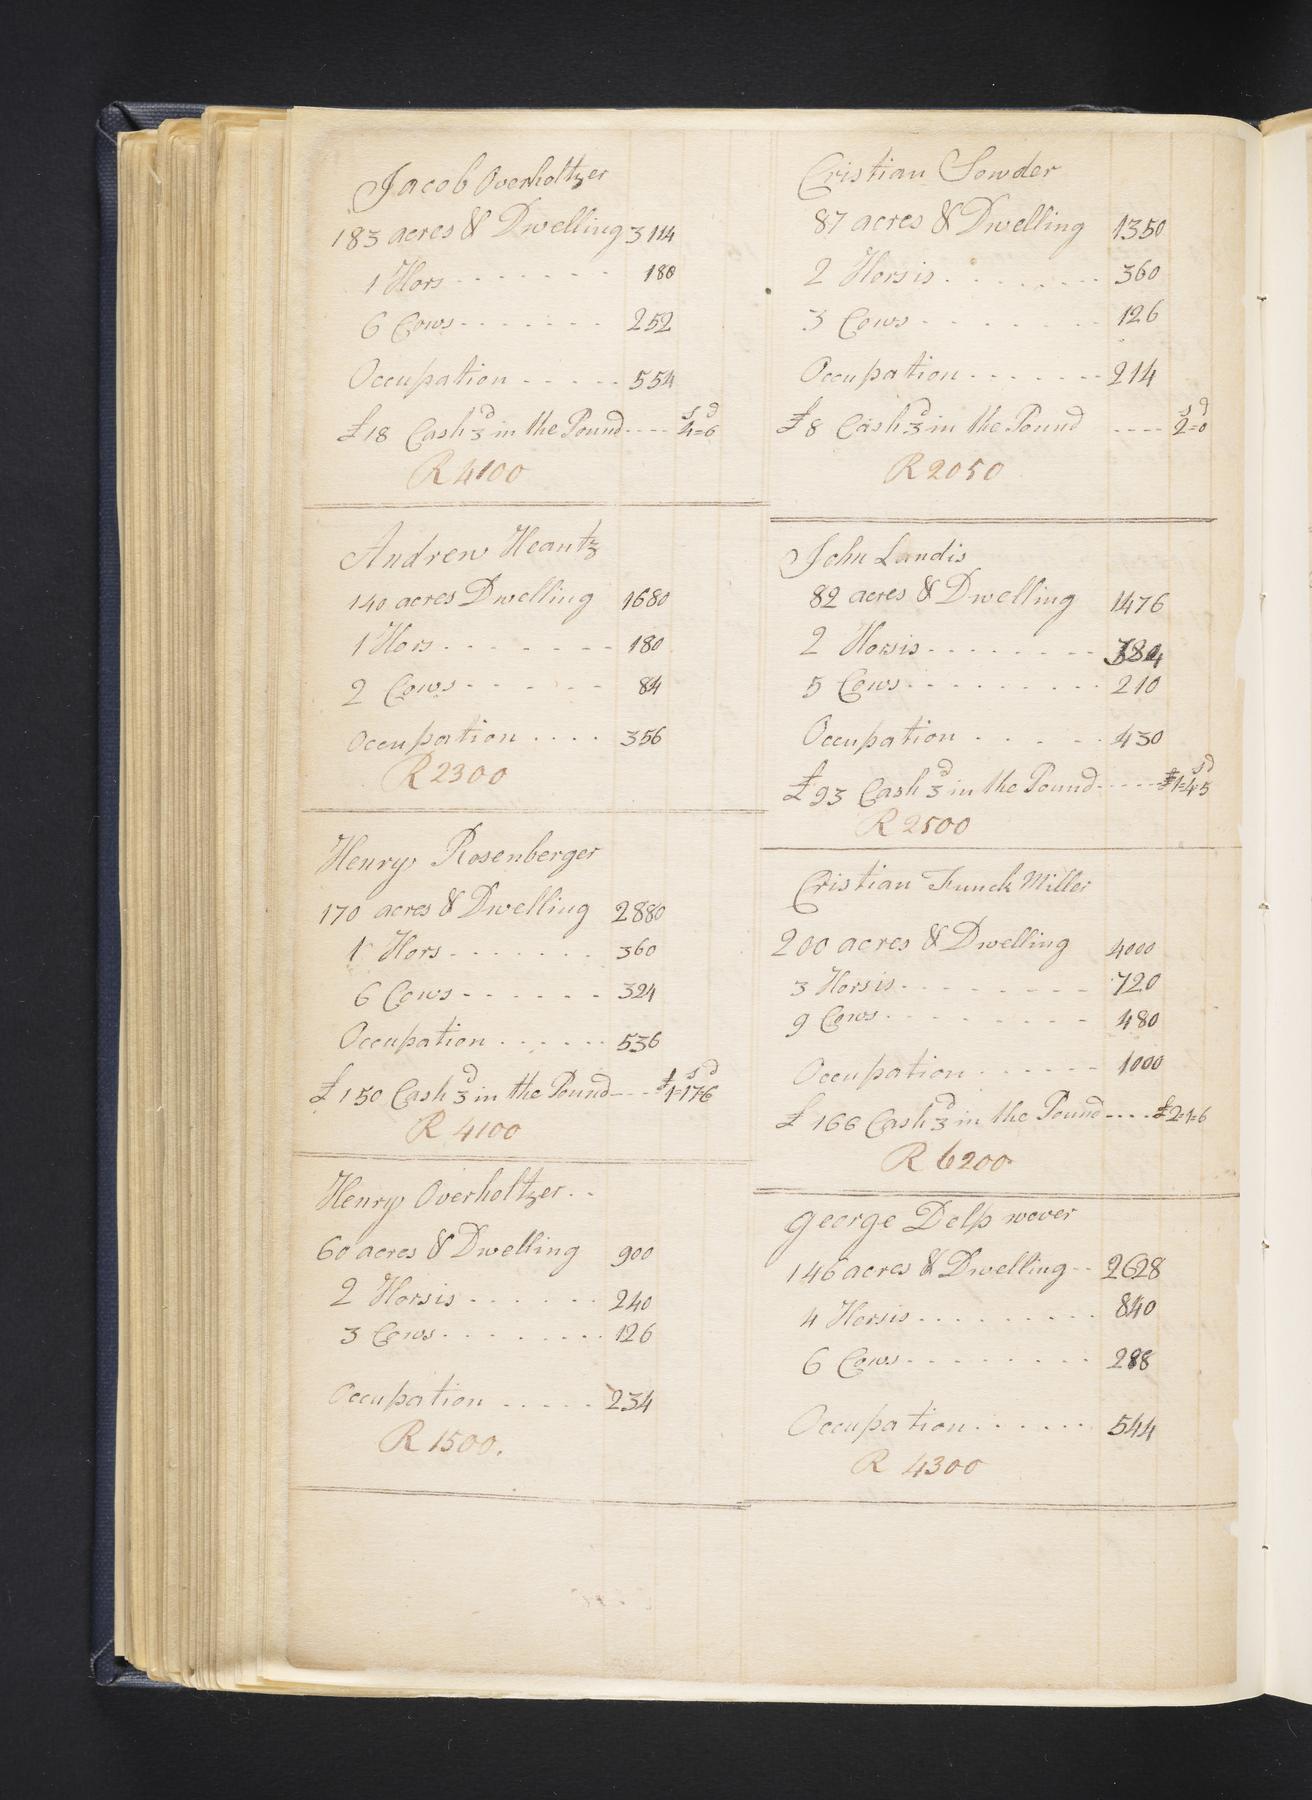 Jacob Overholtzer
183 acres & Dwelling 3114
1 Hors - - - - - - 180
6 Cows - - - - - - 252
Occupation - - - - - 554
£18 Cash 3d in the Pound - - - - 4s=6d
R 4100
Andrew Heantz
140 acres Dwelling 1680
1 Hors - - - - - - - 180
2 Cows - - - - - - 84
Occupation - - - - 356
R 2300
Henry Rosenberger
170 acres & Dwelling 2880
1 Hors - - - - - - - 360
6 Cows - - - - - - 324
Occupation - - - - - - 536
£150 Cash 3d in the Pound - - - £1=17s=6d
R 4100
Henry Overholtzer - -
60 acres & Dwelling 900
2 Horsis - - - - - - 240
3 Cows - - - - - - - - 126
Occupation - - - - - 234
R 1500.
Cristian Sowder
87 acres & Dwelling 1350
2 Horsis - - - - - - - - 360
3 Cows - - - - - - - 126
Occupation - - - - - - - 214
£8 Cash 3d in the Pound - - - - 2s=0d
R 2050
John Landis
82 acres & Dwelling 1476
2 Horsis - - - - - - - - 384
5 Cows - - - - - - - - - 210
Occupation - - - - - 430
£93 Cash 3d in the Pound - - - - - £1=4s=5d
R 2500
Cristian Funck Miller
200 acres & Dwelling 4000
3 Horsis - - - - - - - - 720
9 Cows - - - - - - - - - 480
Occupation - - - - - - 1000
£166 Cash 3d in the Pound - - - - £2=1=6
R 6200
George Delp wever
146 acres & Dwelling - - 2628
4 Horsis - - - - - - - - - 840
6 Cows - - - - - - - - - 288
Occupation - - - - - - 544
R 4300